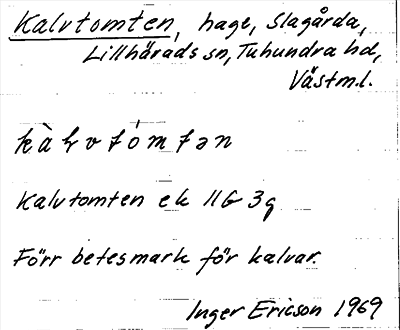 Kalvtomten, hage, Slagårda,
Lillhärads sn, Tuhundra hd,
Västml.
kàɫvtómtən
Kalvtomten ek 11G 3g
Förr betesmark för kalvar.
Inger Ericson 1969